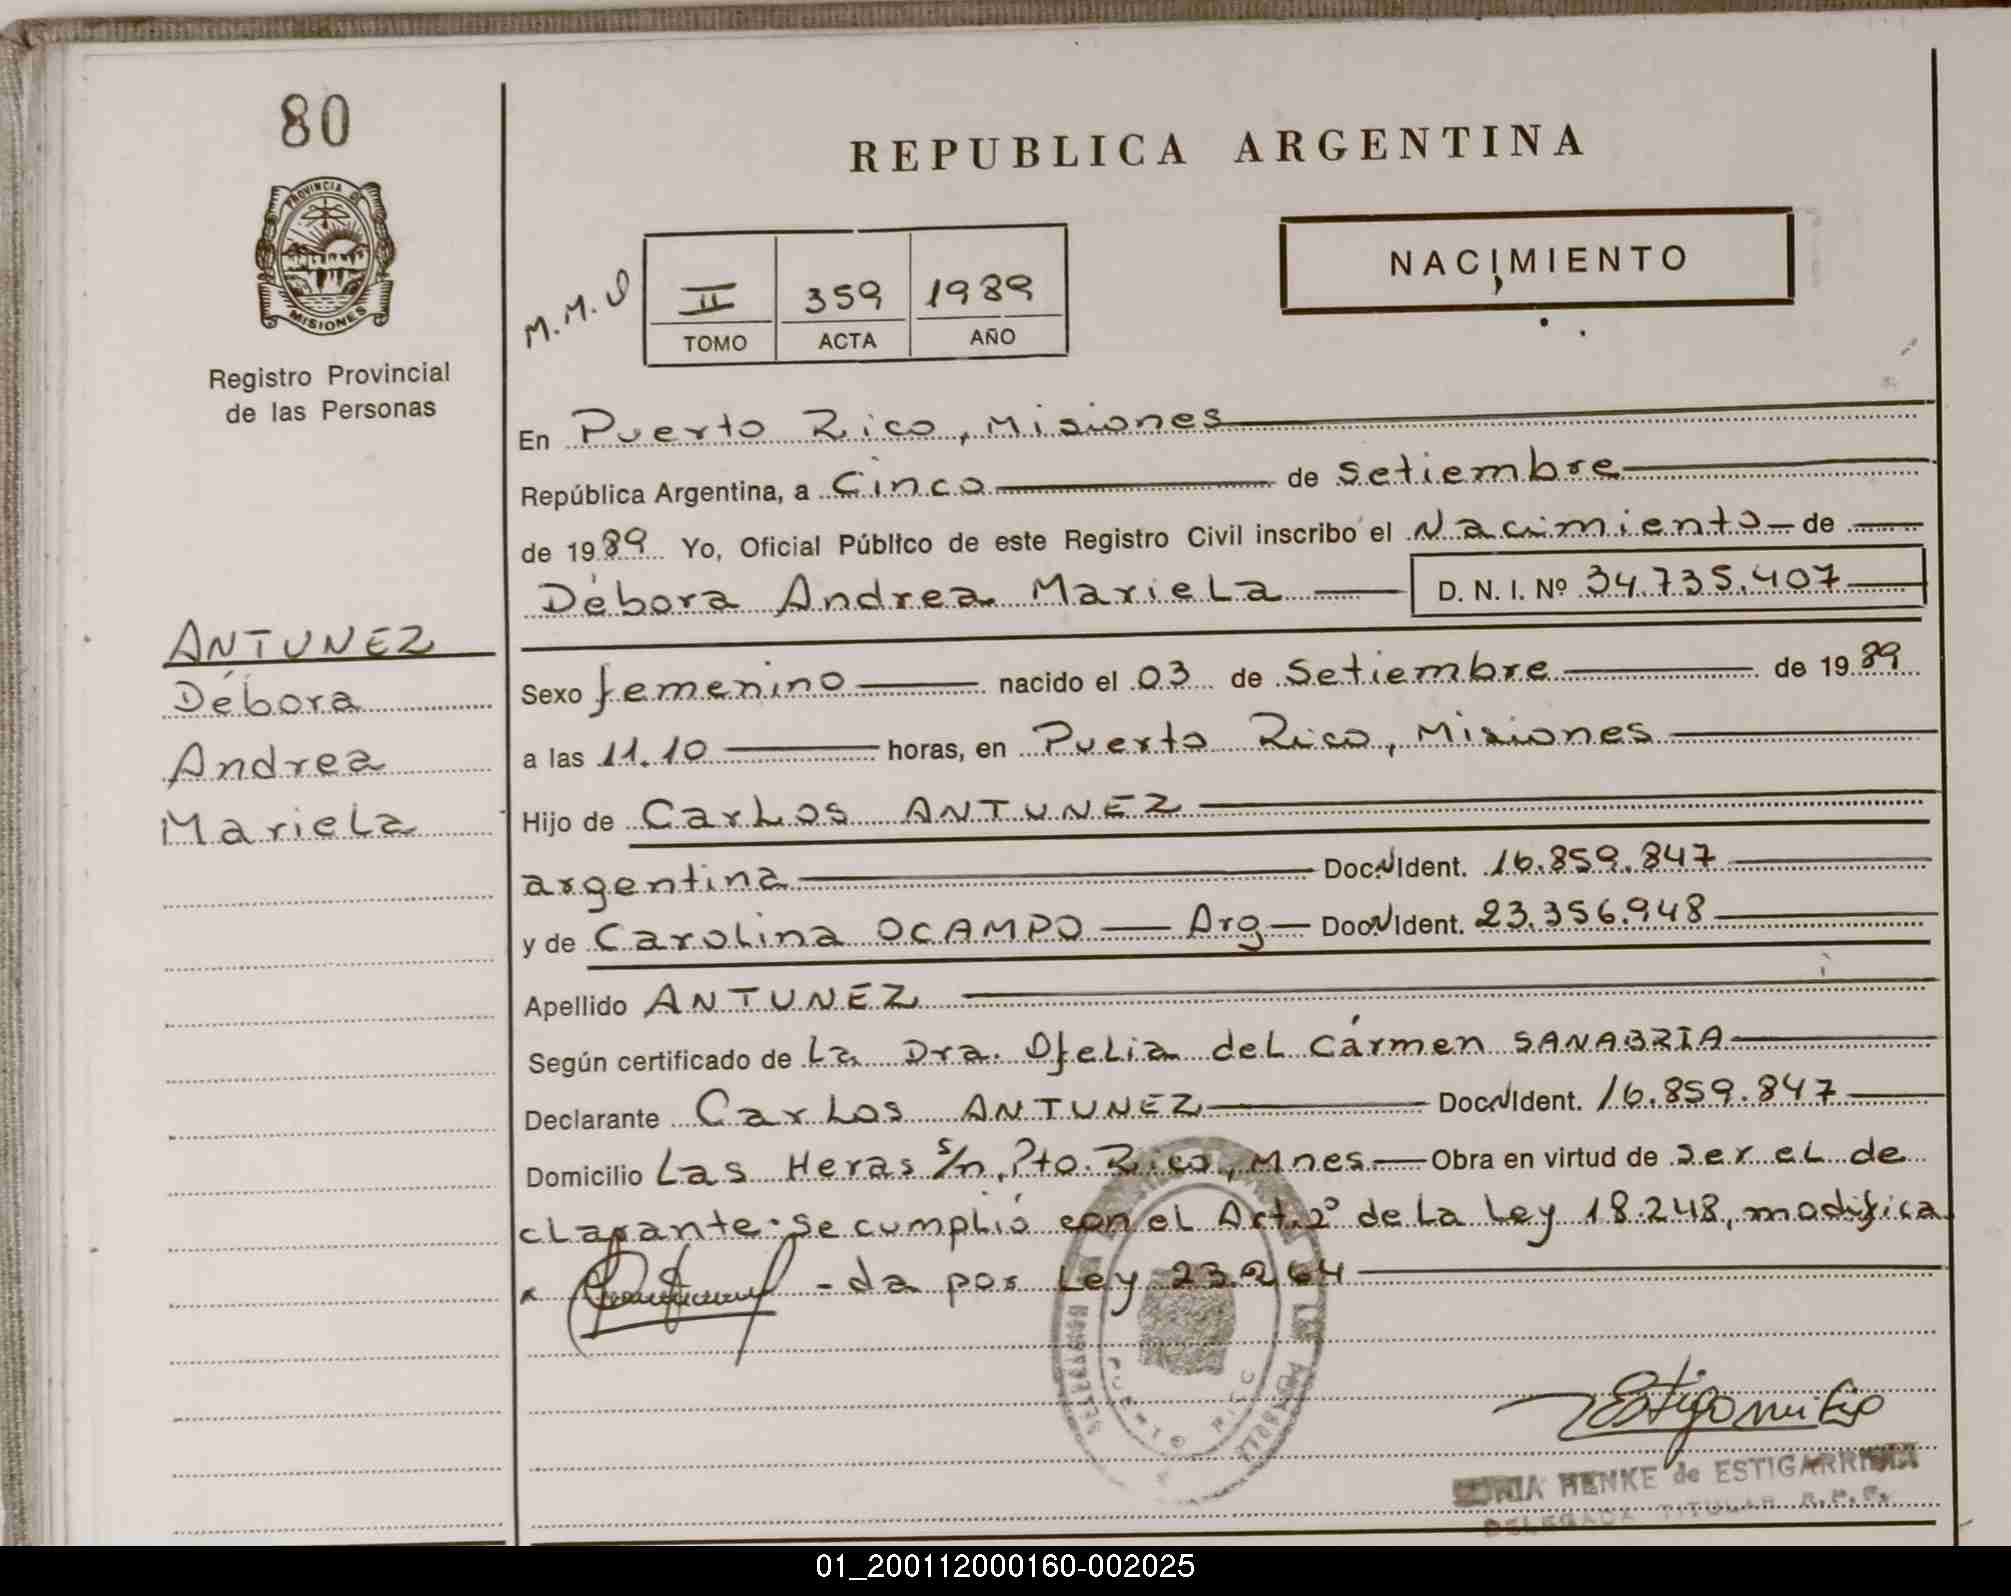 80
PROVINCIA DE
MISIONES
Registro Provincial
de las Personas
ANTUNEZ
Débora
Andrea
Mariela
REPUBLICA ARGENTINA
NACIMIENTO
M.M.
II 359 1989
TOMO ACTA AÑO
En Puerto Rico, Misiones
República Argentina, a Cinco de Setiembre
de 1989 Yo, Oficial Público de este Registro Civil inscribo el Nacimiento de
Débora Andrea Mariela D. N. I. Nº 34.735.407
Sexo femenino nacido el 03 de Setiembre de 1989
a las 11.10 horas, en Puerto Rico, Misiones
Hijo de Carlos ANTUNEZ
argentina Doc. N Ident. 16.859.847
y de Carolina OCAMPO Arg Doc. N Ident. 23.356.948
Apellido ANTUNEZ
Según certificado de la Dra. Ofelia del Cármen SANABRIA
Declarante Carlos ANTUNEZ Doc. N Ident. 16.859.847
Domicilio Las Heras s/n, Pto. Rico, Mnes Obra en virtud de ser el de
clarante. Se cumplió con el Art. 2º de la Ley 18.248, modifica
- da por Ley 23.264
PUERTO RICO
HENKE de ESTIGARRIBIA
TITULAR R.P.P.
01_200112000160-002025